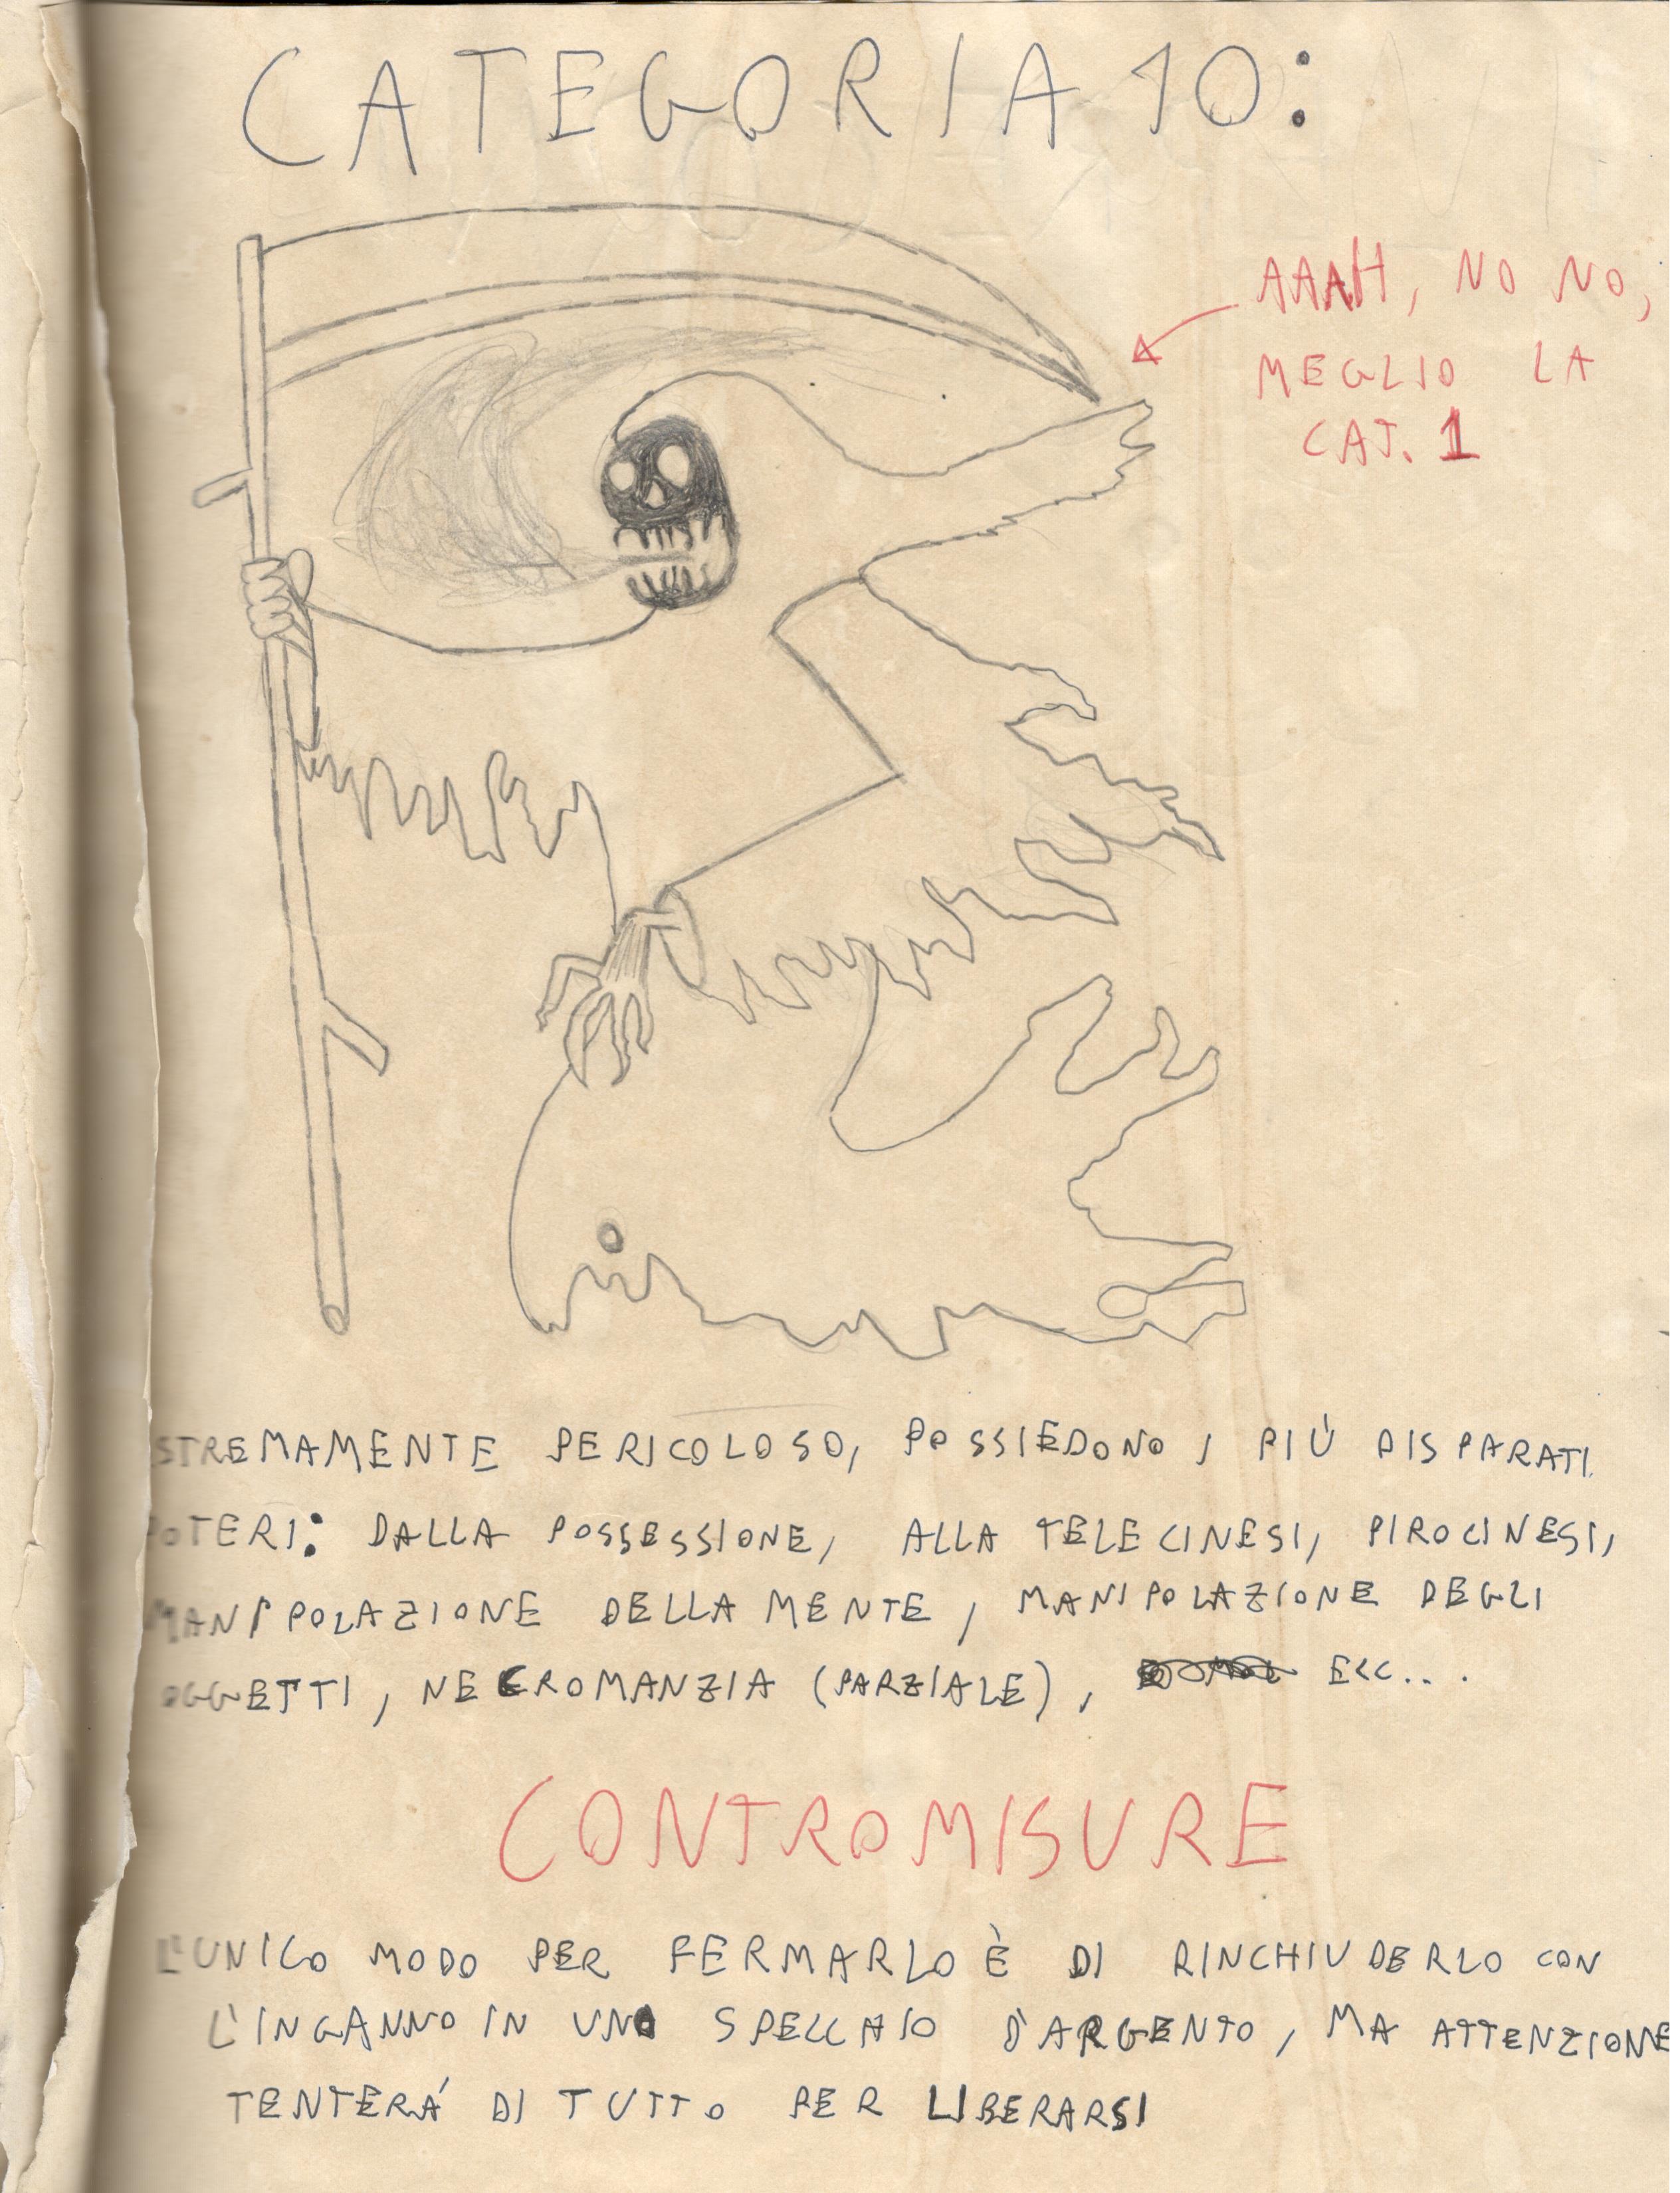 CATEGORIA 10:
AAAH, NO NO,
MEGLIO LA
CAT. 1
STREMAMENTE PERICOLOSO, POSSIEDONO I PIÙ DISPARATI
POTERI: DALLA POSSESSIONE, ALLA TELECINESI, PIROCINESI,
MANIPOLAZIONE DELLA MENTE, MANIPOLAZIONE DEGLI
OGGETTI, NECROMANZIA (PARZIALE), ECC...
CONTROMISURE
L'UNICO MODO PER FERMARLO È DI RINCHIUDERLO CON
L'INGANNO IN UNO SPECCHIO D'ARGENTO, MA ATTENZIONE
TENTERÁ DI TUTTO PER LIBERARSI